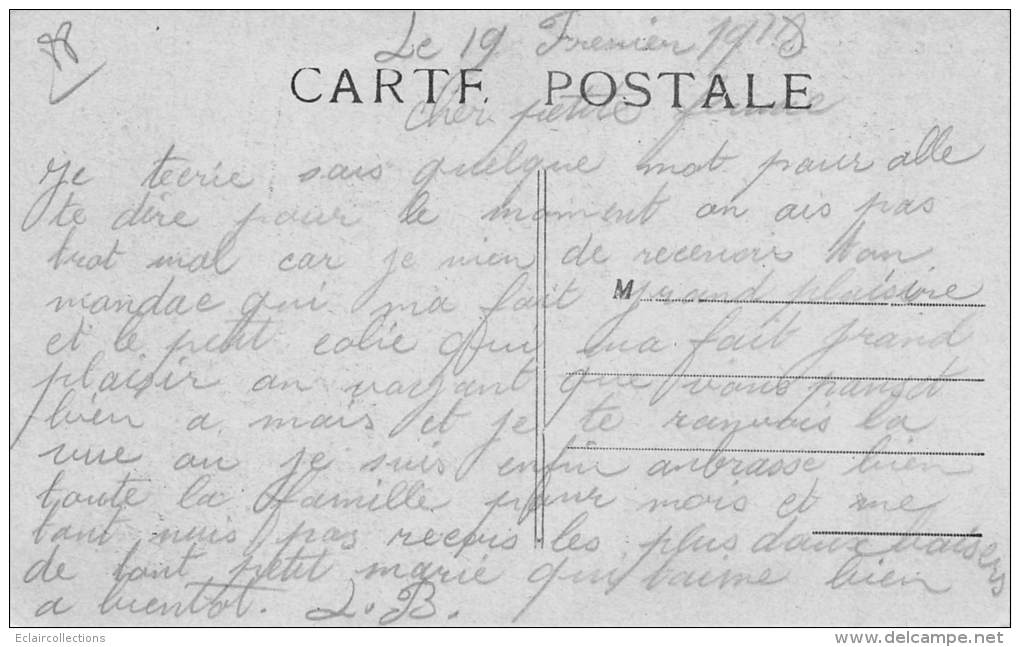 Le 19 Frevier 1918
CARTE POSTALE
cher petite femme
Je tecrie sais quelque mot pour alle
te dire pour le moment on ais pas
trot mal car je vien de recevoir ton
mandae qui ma fait grand plaisire
M
et le petit colie qui ma fait grand
plaisir an voyant que vous panset
bien a mais et je te ranvois la
vue ou je suis enfin anbrasse bien
toute la famille pour mois et me
tant nuis pas recois les plus doux baisers
de tont petit marie qui taime bien
a bientot. L. B.
Eclaircollections
www.delcampe.net